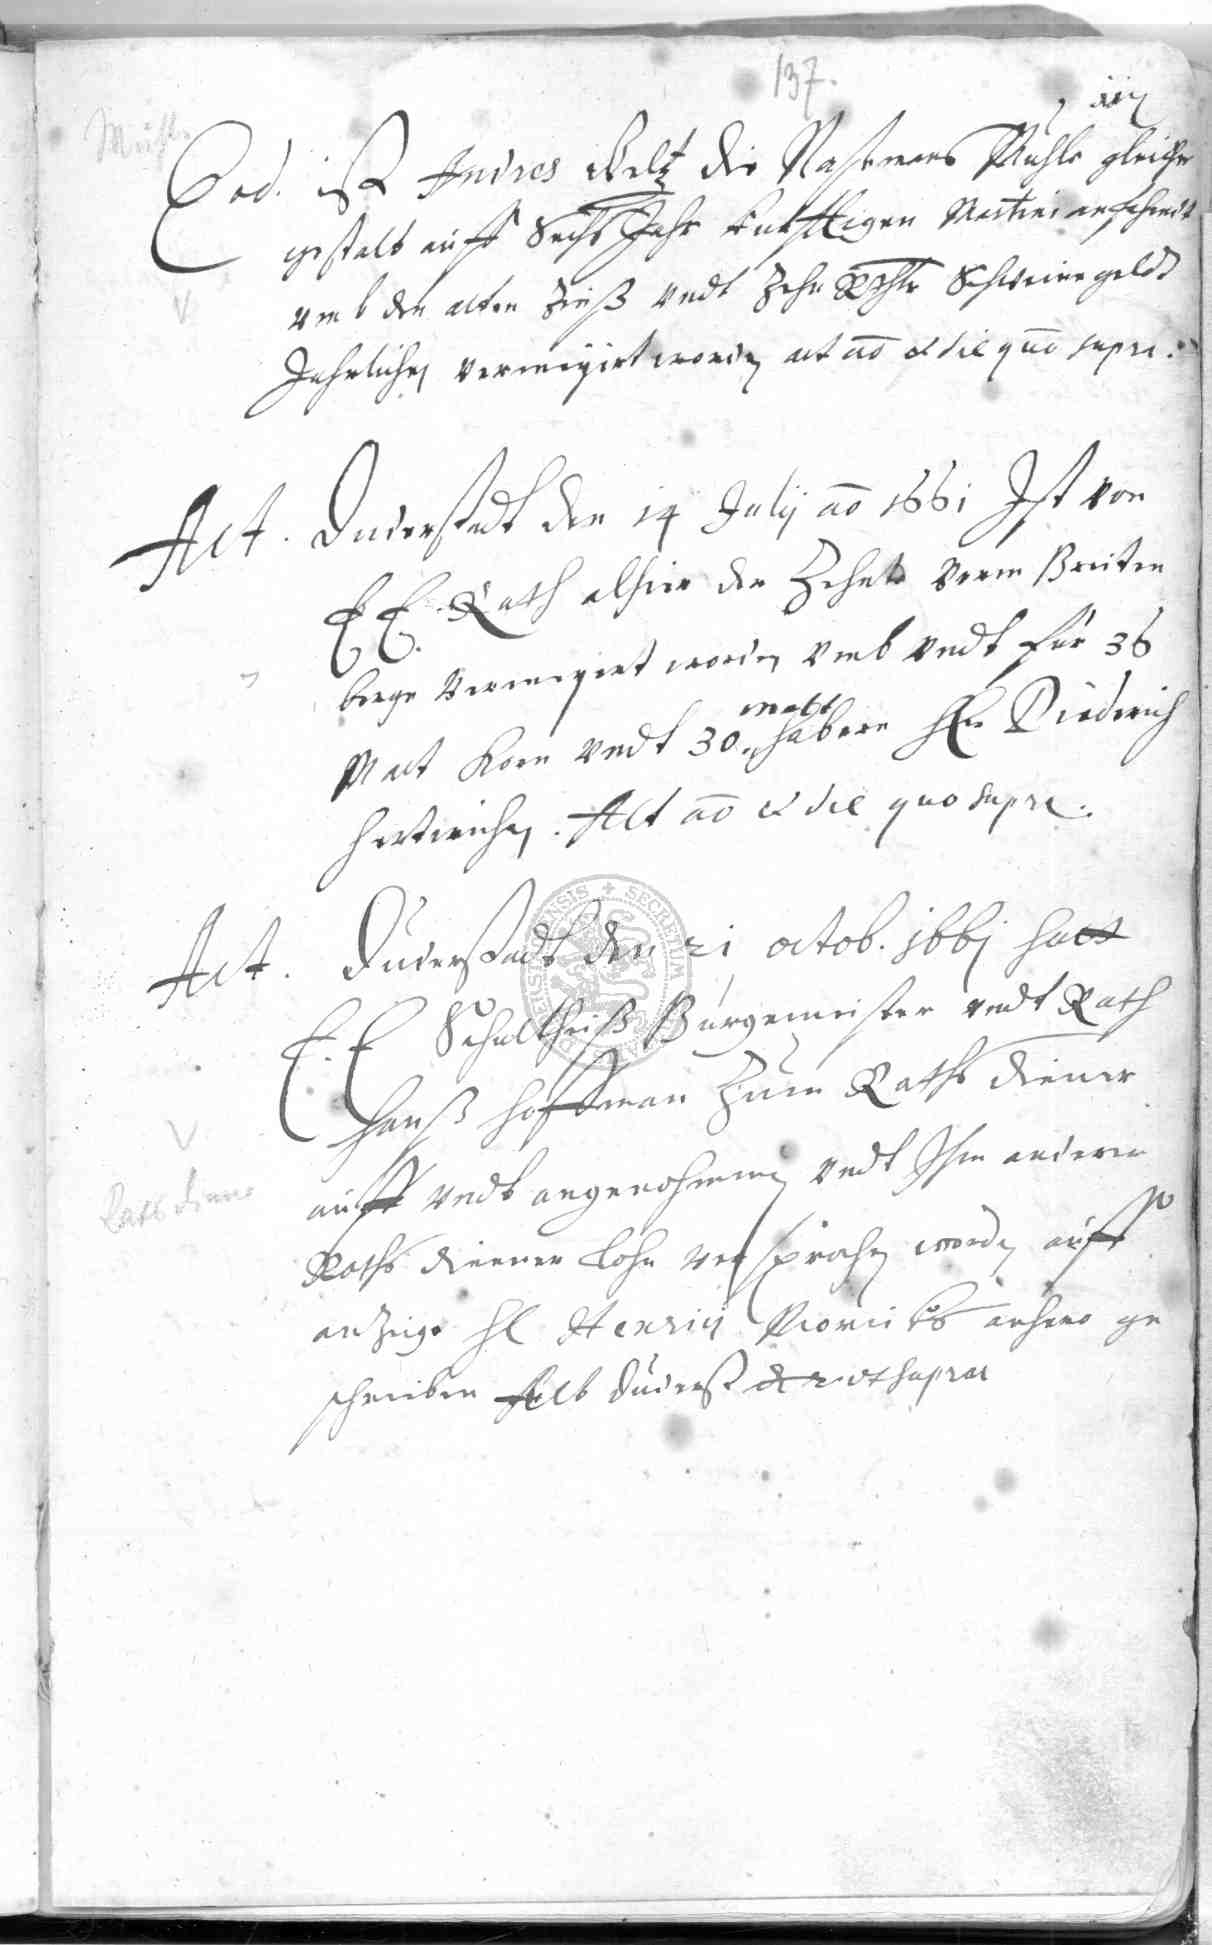 137.
Mühle
Eod. ist Andres die Nasemans Mühle gleicher
gestalt auff Sechs Jahr künfftigen Martini
umb den alten Zinß undt Zehn Rthlr Schweinegeldt
Jahrlichen vermeyirt worden act ao et die quo supra.
Act. Duderstadt den 14 July ao 1661 Ist von
E E. Rath alhier der Zehnte Vorm Breiten
berge Vermeyert worden umb undt für 36
Malt Korn undt 30. malt habern H. Diederich
Hertwichen. Act ao et die quo supra.
Act. Duderstadt den 21 octob. 1661 hatt
E. E Schultheiß Bürgemeister undt Rath
Hanß Hoffman Zum Raths diener
auff undt angenohmmen undt Ihm anderer
Raths diener lohn versprochen worden auff
H Henrici anhero ge
schrieben Act Duderst ut supra
Raths diener